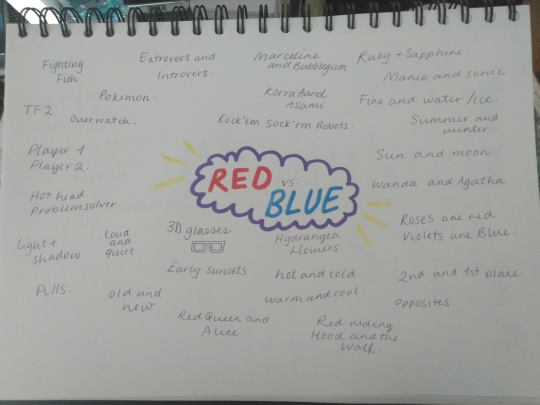 Fighting
Fish
Extrovert and
Introvert.
Marceline
and Bubblegum
Ruby + Sapphire
Mario and sonic
Pokemon.
Korra and
Asami
Fire and water/ice.
TF2
Overwatch.
Rock'em Sock'em Robots.
Summer and
winter
Player 1
Player 2.
RED vs.
BLUE
Sun and moon
Wanda and Agatha
Hot head
problem solver
Roses are red
Violets are Blue.
Light +
shadow
Loud
and
quiet
3D glasses
Hydrangea
flowers
Early sunsets
hot and cold.
2nd and 1st place.
Pills.
Old and
new
warm and cool.
Opposites.
Red Queen and
Alice
Red riding
Hood and the
Wolf.